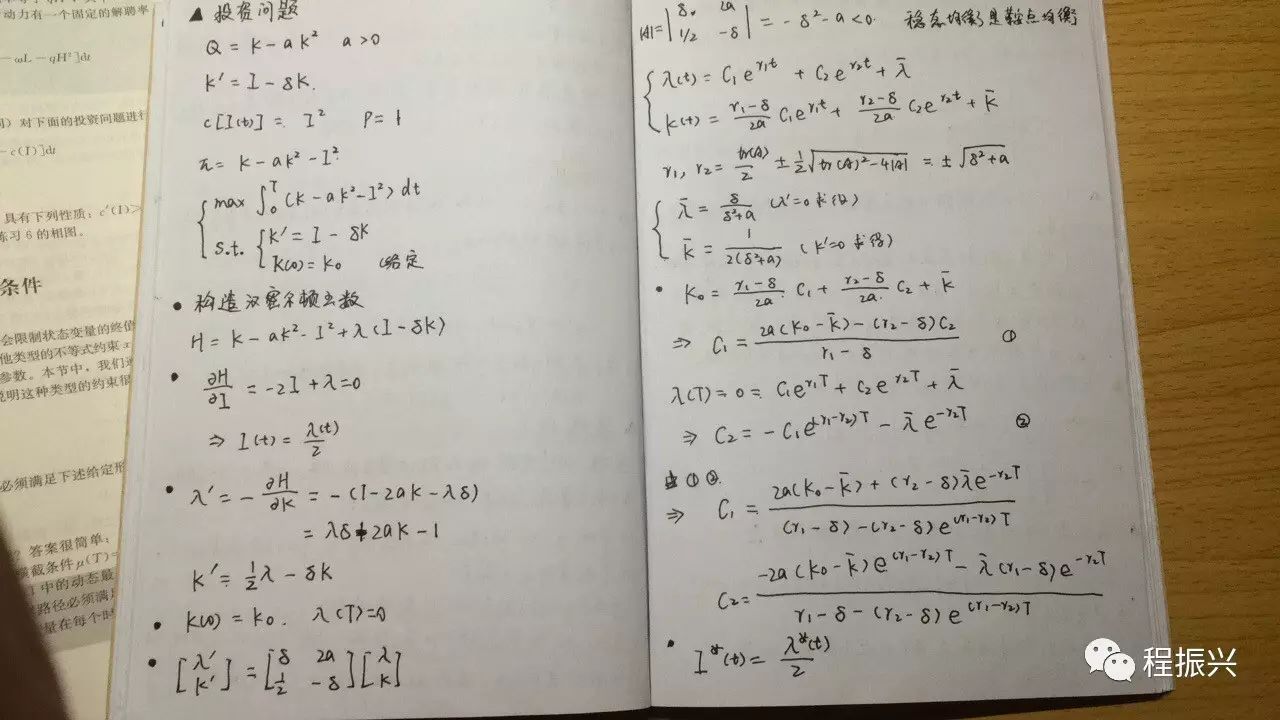 动力有一个固定的解聘率
-ωL-qH²]dt
对下面的投资问题进行
-c(I)]dt
具有下列性质：c′(I)>
练习 6 的相图。
条件
会限制状态变量的终值
他类型的不等式约束 x
参数。本节中，我们
说明这种类型的约束很
必须满足下述给定形
答案很简单：
横截条件 μ(T)=
中的动态最
路径必须满足
量在每个时
▲ 投资问题
Q = K - aK² a>0
K′ = I - δK.
c[I(t)] = I² P = 1
π = K - aK² - I²
max ∫₀ᵀ (K - aK² - I²) dt
s.t. { K′ = I - δK
K(0) = K₀ (给定
• 构造汉密尔顿函数
H = K - aK² - I² + λ(I - δK)
• ∂H/∂I = -2I + λ = 0
⇒ I(t) = λ(t)/2
• λ′ = -∂H/∂K = -(1 - 2aK - λδ)
= λδ + 2aK - 1
K′ = ½λ - δK
• K(0) = K₀. λ(T) = 0
• [λ′ K′] = [δ 2a ½ -δ][λ K]
|A| = |δ. 2a 1/2 -δ| = -δ² - a < 0. 稳态均衡是鞍点均衡
{ λ(t) = C₁e^{r₁t} + C₂e^{r₂t} + λ̄
K(t) = (r₁-δ)/2a C₁e^{r₁t} + (r₂-δ)/2a C₂e^{r₂t} + K̄
r₁, r₂ = tr(A)/2 ± ½√(tr(A)² - 4|A|) = ± √(δ²+a)
{ λ̄ = δ/(δ²+a) (λ′=0 求得)
K̄ = 1/(2(δ²+a)) (K′=0 求得)
• K₀ = (r₁-δ)/2a. C₁ + (r₂-δ)/2a. C₂ + K̄
⇒ C₁ = (2a(K₀-K̄) - (r₂-δ)C₂)/(r₁-δ) ①
λ(T) = 0 = C₁e^{r₁T} + C₂e^{r₂T} + λ̄
⇒ C₂ = -C₁e^{(r₁-r₂)T} - λ̄e^{-r₂T} ②
由 ① ②.
⇒ C₁ = (2a(K₀-K̄) + (r₂-δ)λ̄e^{-r₂T})/((r₁-δ) - (r₂-δ)e^{(r₁-r₂)T})
C₂ = (-2a(K₀-K̄)e^{(r₁-r₂)T} - λ̄(r₁-δ)e^{-r₂T})/(r₁-δ-(r₂-δ)e^{(r₁-r₂)T})
• I*(t) = λ*(t)/2
程振兴